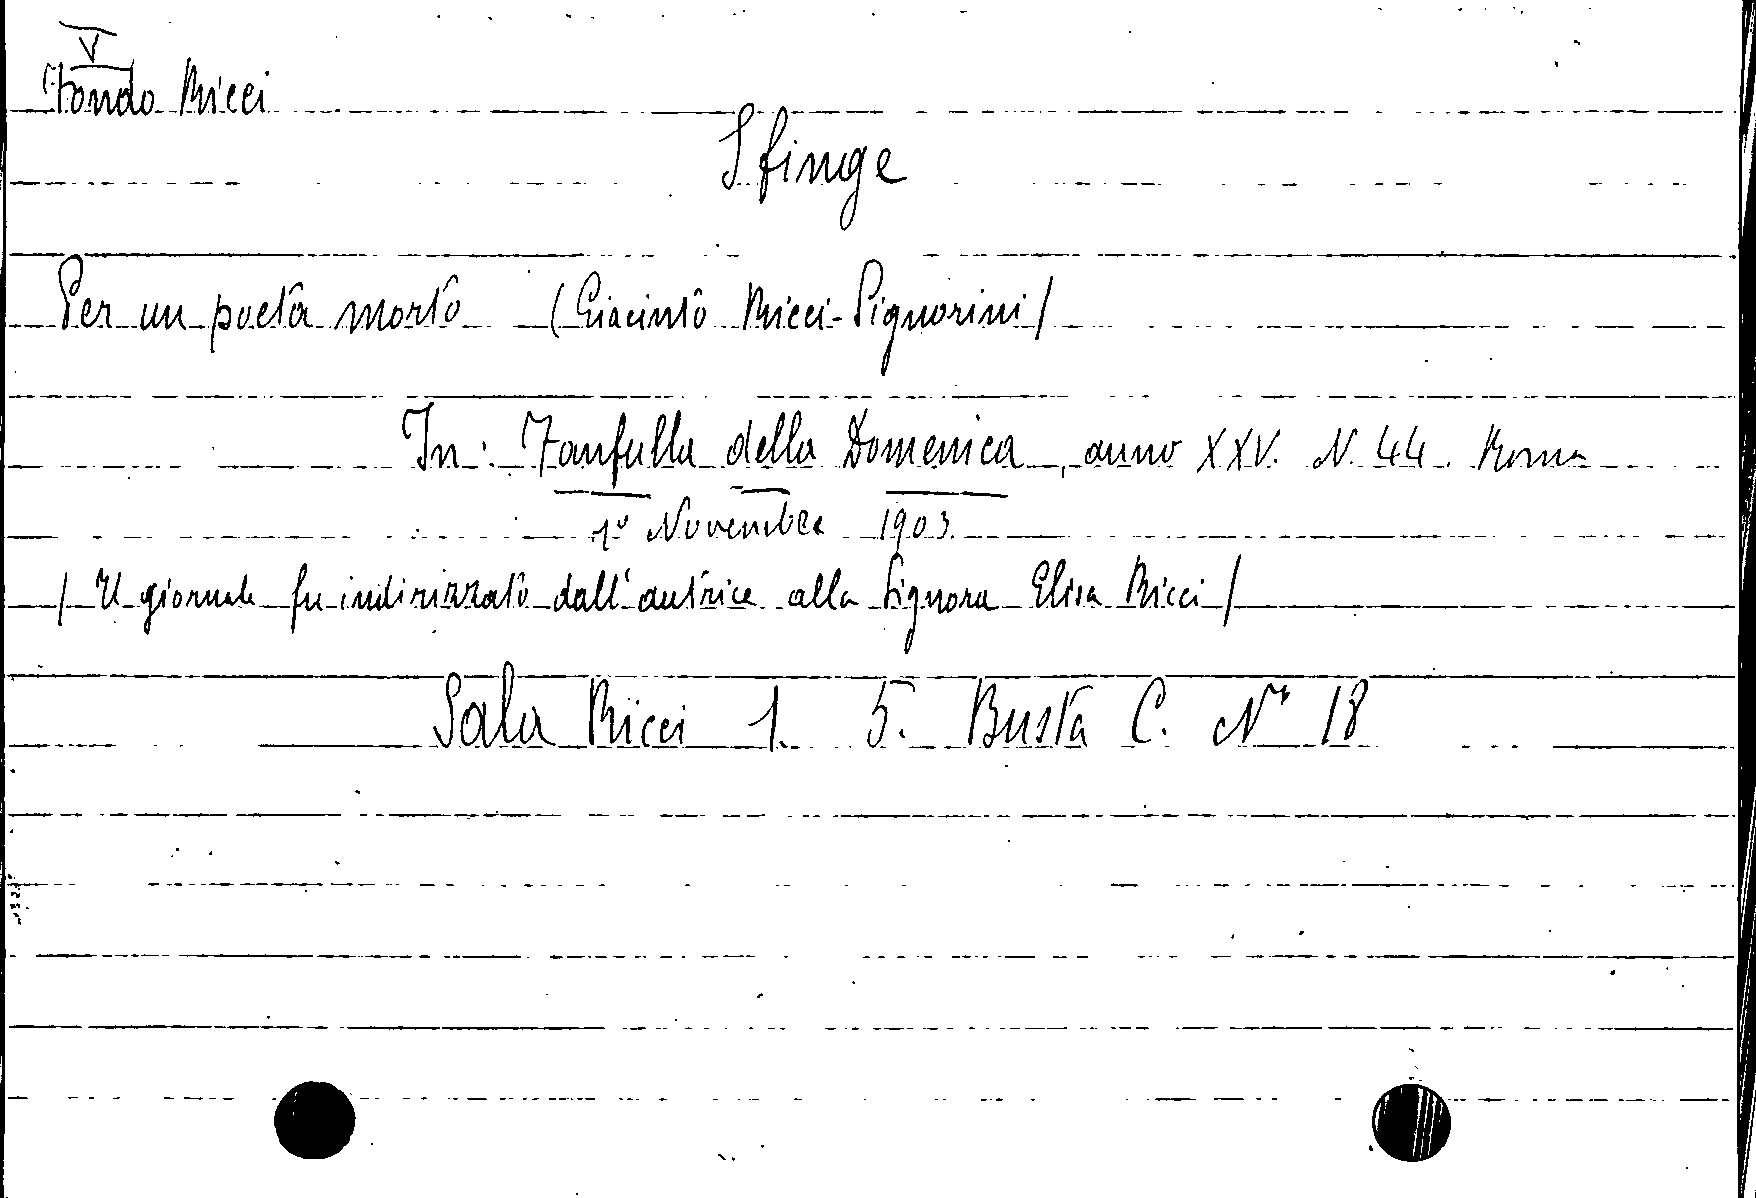 V
Fondo Ricci
Sfinge
Per un poeta morto (Giacinto Ricci-Signorini/
In: Fanfulla della Domenica, anno XXV. N. 44. Roma
1º Novembre 1903.
/ Il giornale fu indirizzato dall'autrice alla Signora Elisa Ricci/
Sala Ricci 1. 5. Busta C. Nº 18